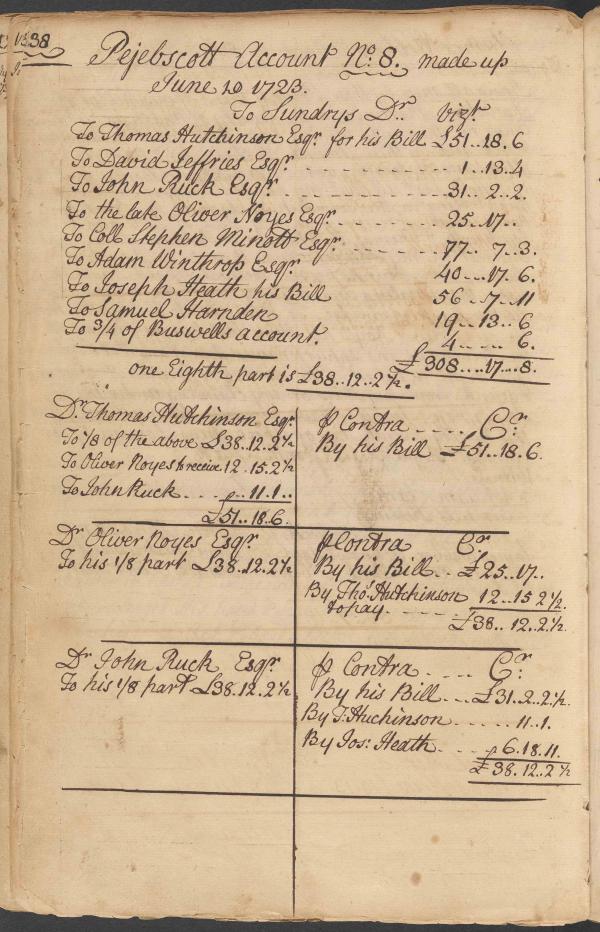 38
Pejebscott Account No: 8. made up
June 10 1723.
To Sundrys Dr. vizt.
To Thomas Hutchinson Esqr. for his Bill £51..18.6
To David Jeffries Esqr. - - - - - - - - - - 1..13.4
To John Ruck Esqr. - - - - - - - - - - 31..2..2.
To the late Oliver Noyes Esqr. - - - - - - 25..17..
To Coll Stephen Minott Esqr. - - - - - - 77..7..3.
To Adam Winthrop Esqr. 40...17.6.
To Joseph Heath his Bill 56..7..11
To Samuel Harnden 19..13..6
To 3/4 of Buswells account. 4.. ... 6.
£308....17...8.
one Eighth part is £38..12..2½.
Dr. Thomas Hutchinson Esqr.
To 1/8 of the above £38.12.2½
To Oliver Noyes to receive 12.15.2½
To John Ruck - - - ..11.1..
£51..18.6.
⅌ Contra - - - - Cr.
By his Bill £51..18.6.
Dr Oliver Noyes Esqr.
To his 1/8 part £38.12.2½
⅌ Contra Cr
By his Bill.. £25..17..
By Tho: Hutchinson 12..15 2½.
to pay. - - - - -
£38..12..2½.
Dr John Ruck Esqr.
To his 1/8 part £38.12.2½
⅌ Contra - - - - Cr.
By his Bill - - £31.2..2½.
By T: Huchinson - - - - - 11.1.
By Jos: Heath - - - 6.18.11.
£38.12..2½